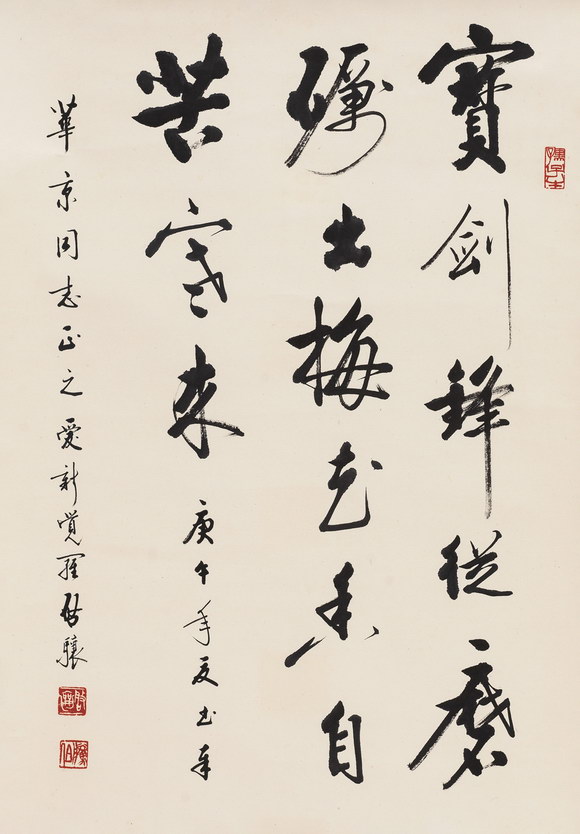 寶劍鋒從磨
礪出梅花香自
苦寒來 庚午年夏书奉
華京同志正之 愛新覺羅啓驤